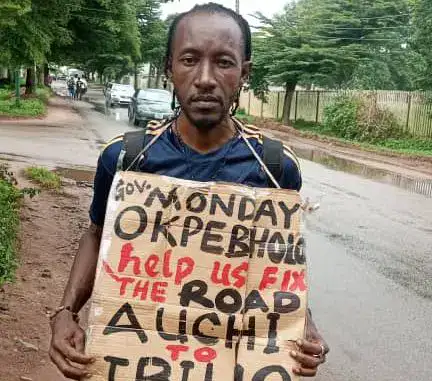 Gov. MONDAY
OKPEBHOLO
help us FIX
THE ROAD
AUCHI
TO
IBILLO